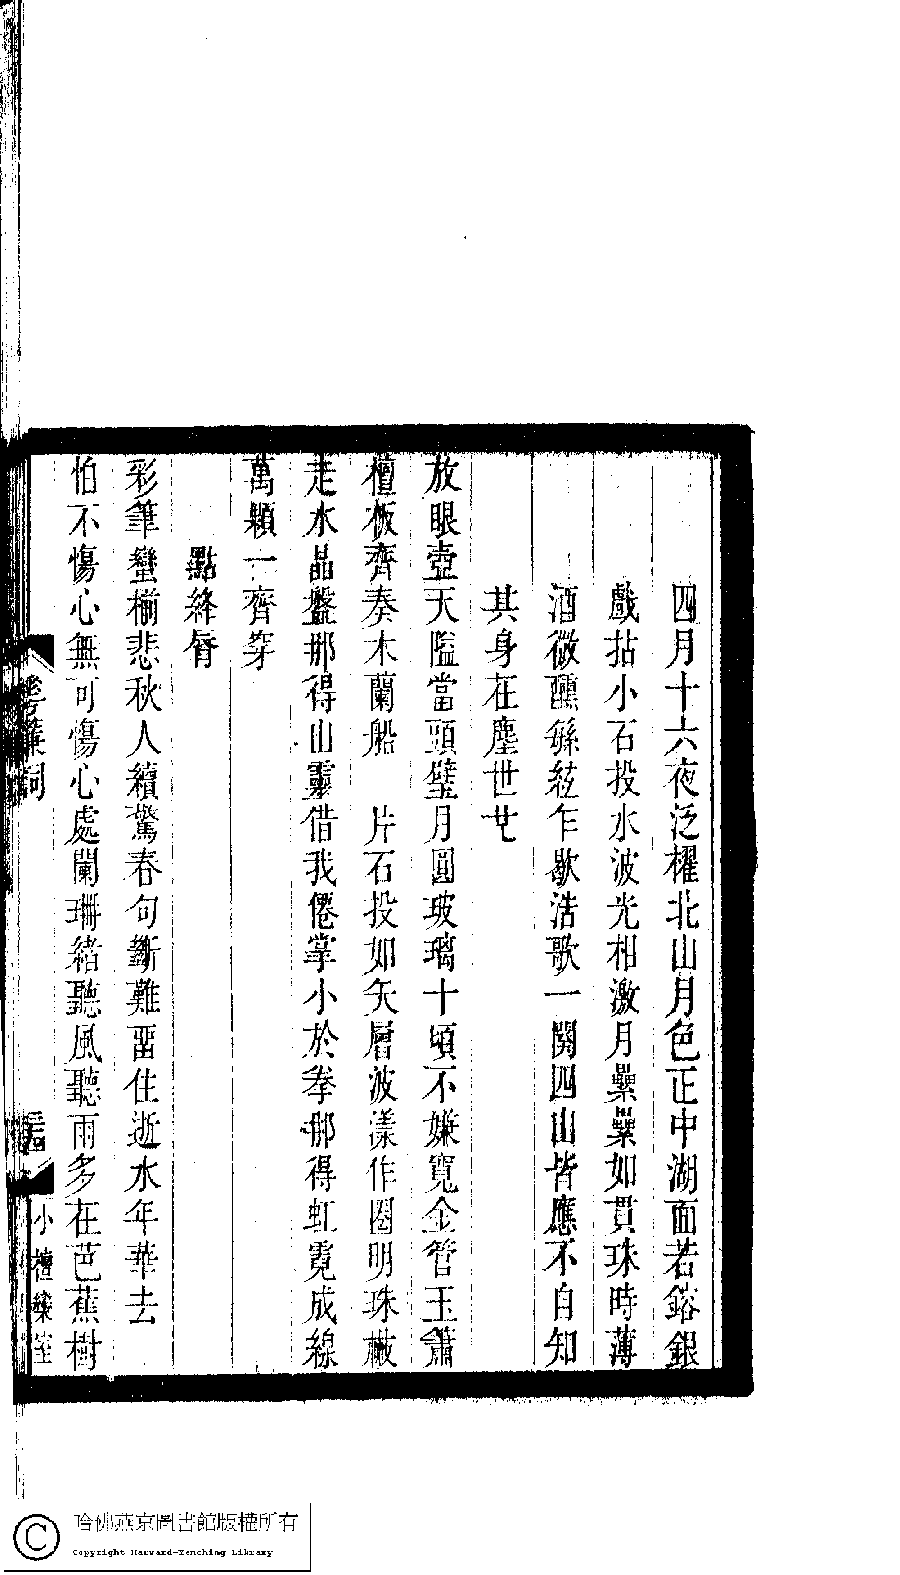 四月十六夜泛櫂北山月色正中湖面若鎔銀
戲拈小石投水波光相激月纍纍如貫珠時薄
酒微醺絲絃乍歇浩歌一闋四山皆應不自知
其身在塵世也
放眼壺天隘當頭璧月圓玻璃十頃不嫌寬金管玉簫
檀板齊奏木蘭船　片石投如矢層波漾作圈明珠撒
走水晶盤那得山靈借我僊掌小於拳那得虹霓成線
萬顆一齊穿
點絳脣
彩筆蠻櫤悲秋人續驚春句斷難畱住逝水年華去
怕不傷心無可傷心處闌珊緒聽風聽雨多在芭蕉樹
詞
小檀欒室
哈佛燕京圖書館版權所有
Copyright Harvard-Yenching Library